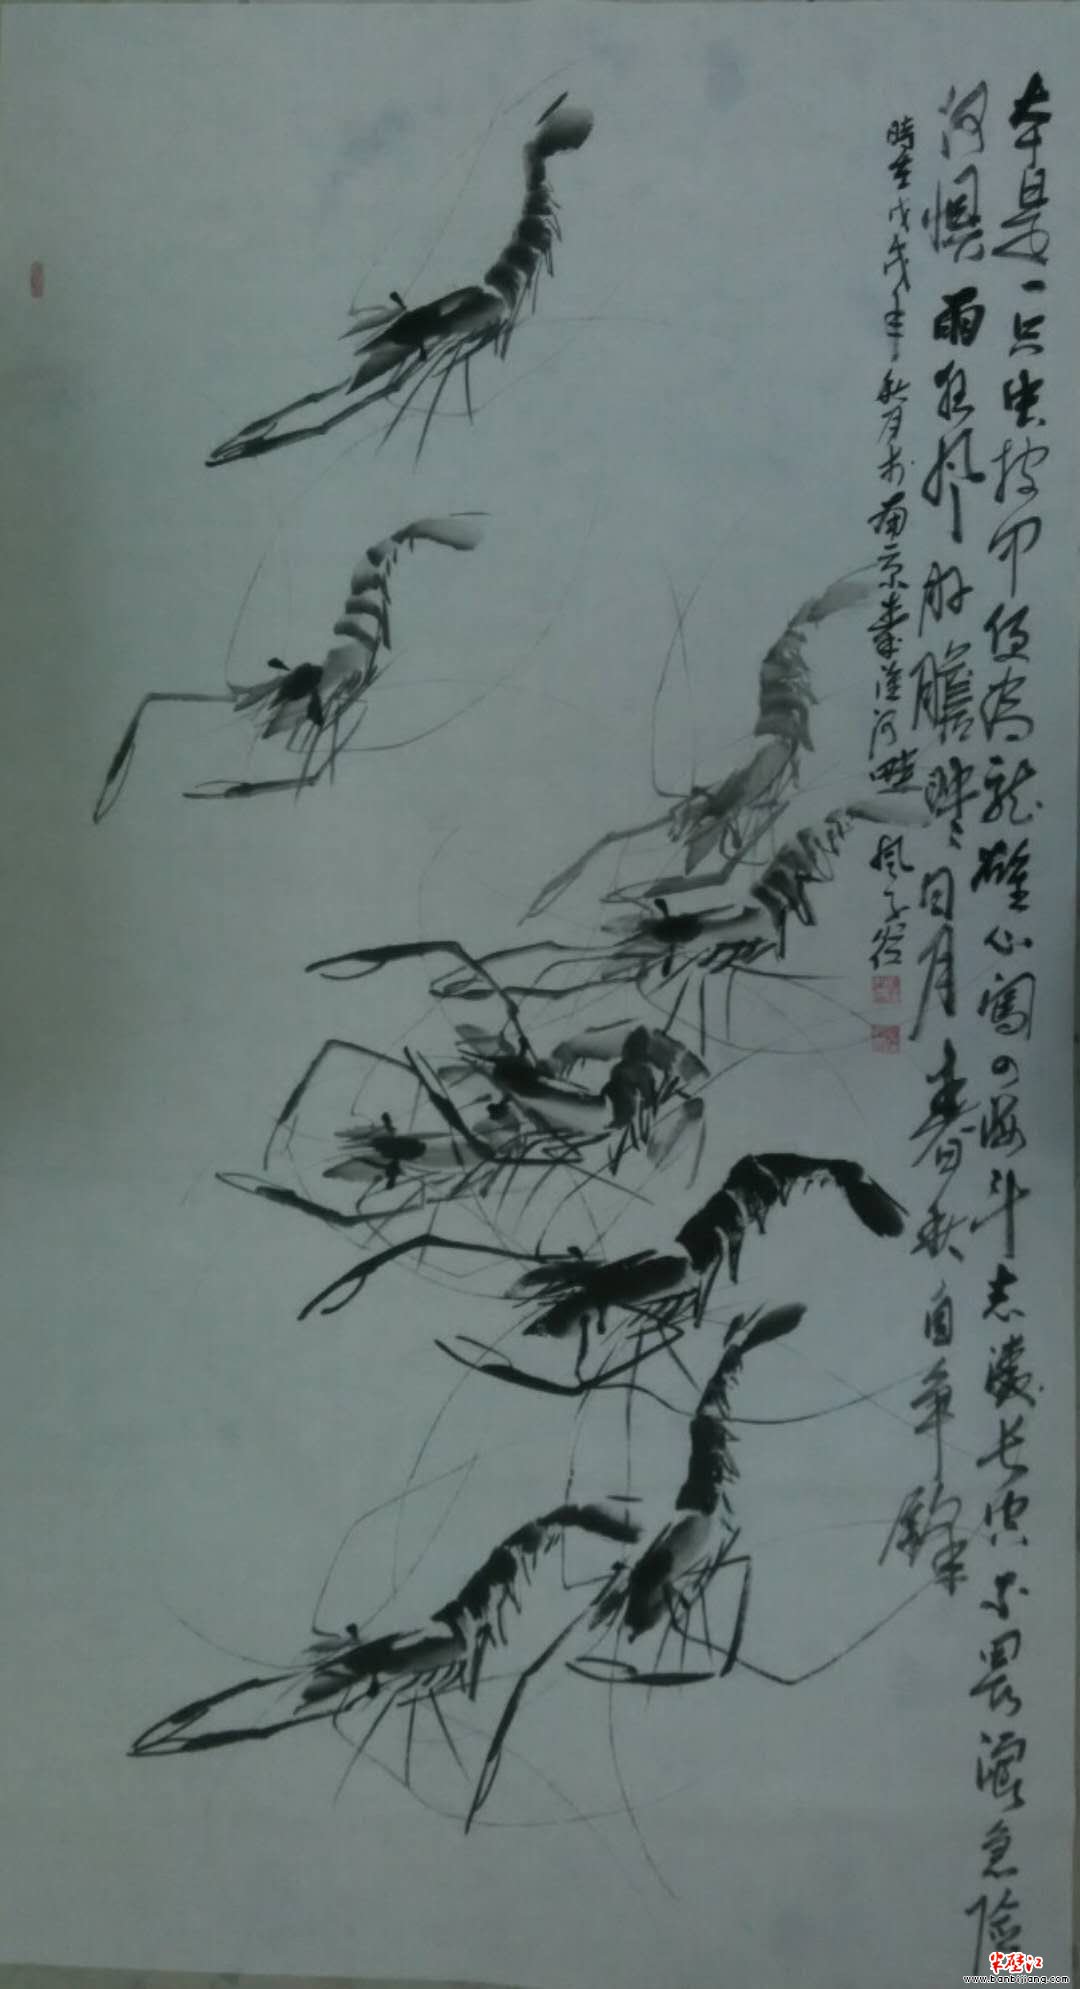 本是一只虫披甲便为龙雄心闯四海斗志凌长空不畏深急险
何惧雨狂风肝胆映日月春秋自争雄
時在戊戌年秋月于南京秦淮河畔 风子谷
半壁江
www.banbijiang.com